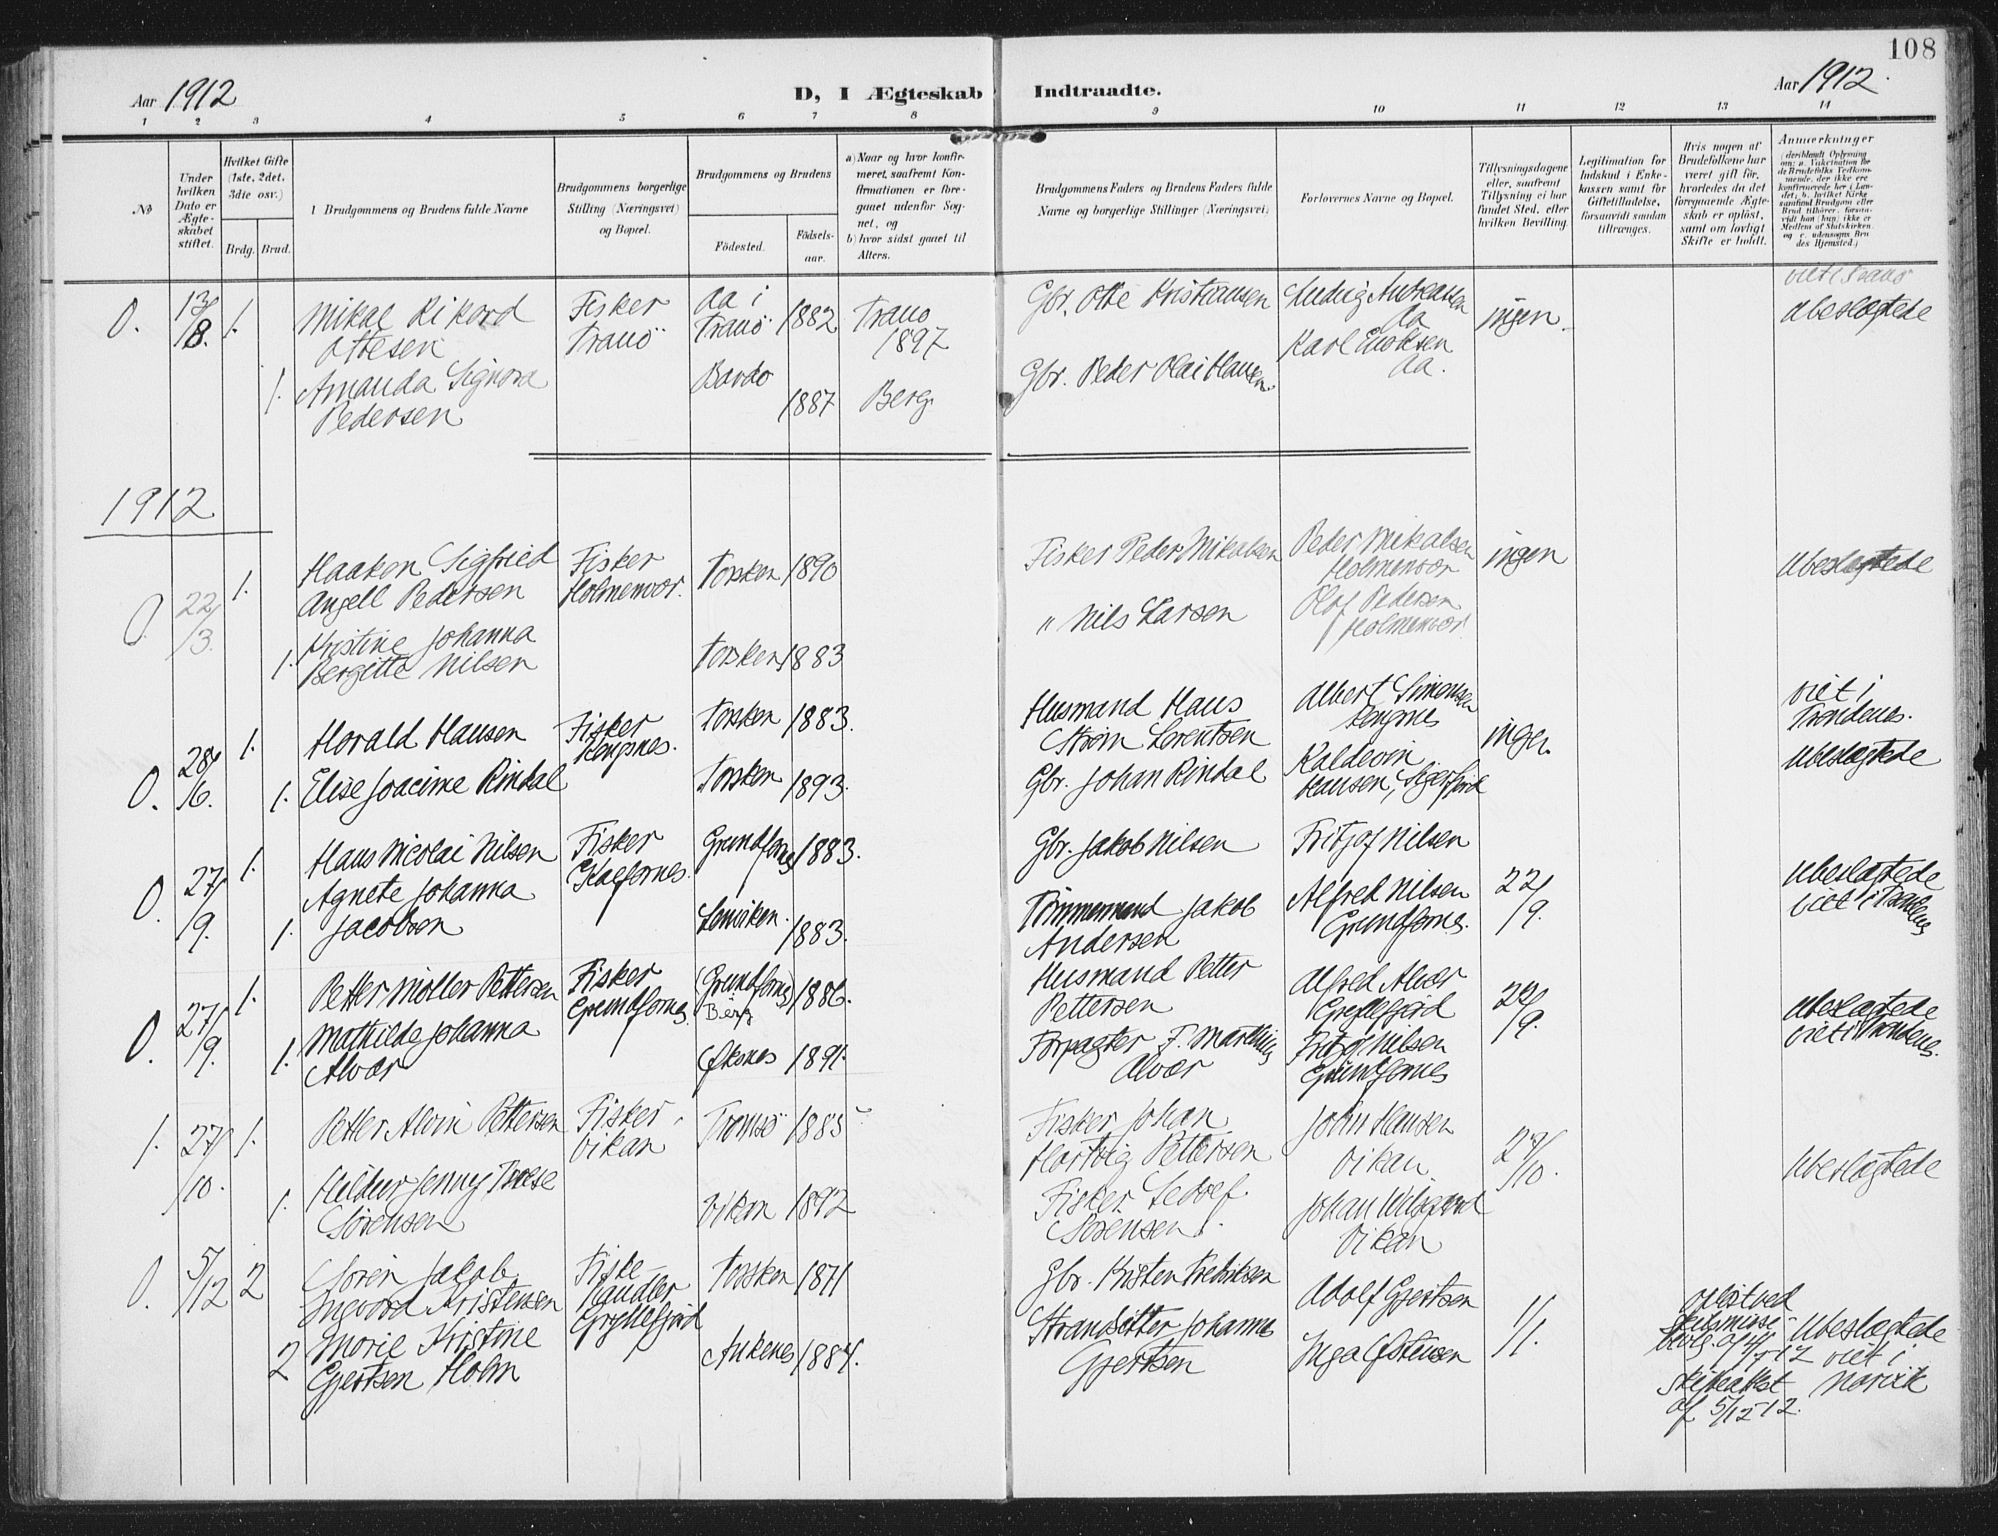 108
Aar 1912
D, I Ægteskab Indtraadte.
Aar 1912.
1 2 3 4 5 6 7 8 9 10 11 12 13 14
No
Under hvilken Dato er Ægteskabet stiftet.
Hvilket Gifte (1ste, 2det, 3die osv.)
Brdg. Brud.
Brudgommens og Brudens fulde Navne
Brudgommens borgerlige Stilling (Næringsvei) og Bopæl.
Brudgommens og Brudens
Fødested.
Fødsels-aar.
a) Naar og hvor konfirmeret, saafremt Konfirmationen er foregaaet udenfor Sognet, og
b) hvor sidst gaaet til Alters.
Brudgommens Faders og Brudens Faders fulde Navne og borgerlige Stillinger (Næringsvei)
Forlovernes Navne og Bopæl.
Tillysningsdagene eller, saafremt Tillysning ei har fundet Sted, efter hvilken Bevilling.
Legitimation for Indskud i Enkekassen samt for Giftetilladelse, forsaavidt saadan tiltrænges.
Hvis nogen af Brudefolkene har været gift før, hvorledes da det foregaaende Ægteskab er opløst, samt om lovligt Skifte er holdt.
Anmærkninger
0. 13/8. 1.
Mikal Rikard Ottesen
Fisker Tranö
Aa i Tranö 1882
Trano 1897
Gbr. Otte Kristiansen
Ludvig Andreassen Aa
Karl Enoksen Aa.
ingen
viet i Tranö
Ubeslegtede
1.
Amanda Signora Pedersen
Bardo 1887
Berg
Gbr. Peder Olai Hansen
1912
0. 22/3. 1.
Haakon Sigfried Angell Pedersen
Fisker Holmenvær.
Torsken 1890
Fisker Peder Mikalsen
Peder Mikalsen Holmenvær
Olaf Pedersen Holmenvær
ingen
Ubeslegtede
1.
Kristine Johanna Bergitte Nilsen
Torsken 1883
" Nils Larsen
0. 28/6. 1.
Harald Hansen
Fisker
Torsken 1883.
Husmand Hans Strøm Lorentsen
Albert Simonsen
Kaldevin Hansen, Sigerfjord
ingen.
viet i Trondenes.
Ubeslegtede
1.
Elise Joacime Rindal
Torsken 1893.
Gbr. Johan Rindal
0. 27/9. 1.
Hans Nicolai Nilsen
Fisker
Grundfarnes 1883.
Gbr. Jakob Nilsen
Fritjof Nilsen
Alfred Nilsen Grundfarnes.
22/9.
Ubeslegtede
viet i Trondenes
1.
Agnete Johanna Jacobsen
Lenviken. 1883.
Tömmermand Jakob Andersen
0. 27/9. 1.
Petter Møller Pettersen
Fisker Grundfarnes.
(Grundfarnes) Berg 1886.
Husmand Petter Pettersen
Alfred Alvær Gryllefjord
Fritjof Nilsen Grundfarnes
22/9.
Ubeslegtede
viet i Trondenes.
1.
Mathilde Johanna Alvær
Øksnes 1891.
Forpagter F. Alvær
1. 27/10. 1.
Petter Alvin Pettersen
Fisker Vikan
Tromsö 1885
Fisker Johan Hartvig Pettersen
John Hansen Vikan
Johan Vikan
27/10.
Ubeslegtede
1.
Hildur Jenny Sörensen
Vikan 1892
Fisker Sörensen
0. 5/12 2
Sören Jakob Ingvard Kristensen
Fiskehandler Gryllefjord
Torsken 1871
Gbr. Kristen Fredriksen
Adolf Gjertsen
Inga Østensen
1/1.
opløst ved skilsmisse bevilg. af 4/7-12
skifteattest af 5/12-12.
Ubeslegtede
viet i Narvik
2
Marie Kristine Gjertsen Holm
Ankenes 1884.
Strandsitter Johannes Gjertsen